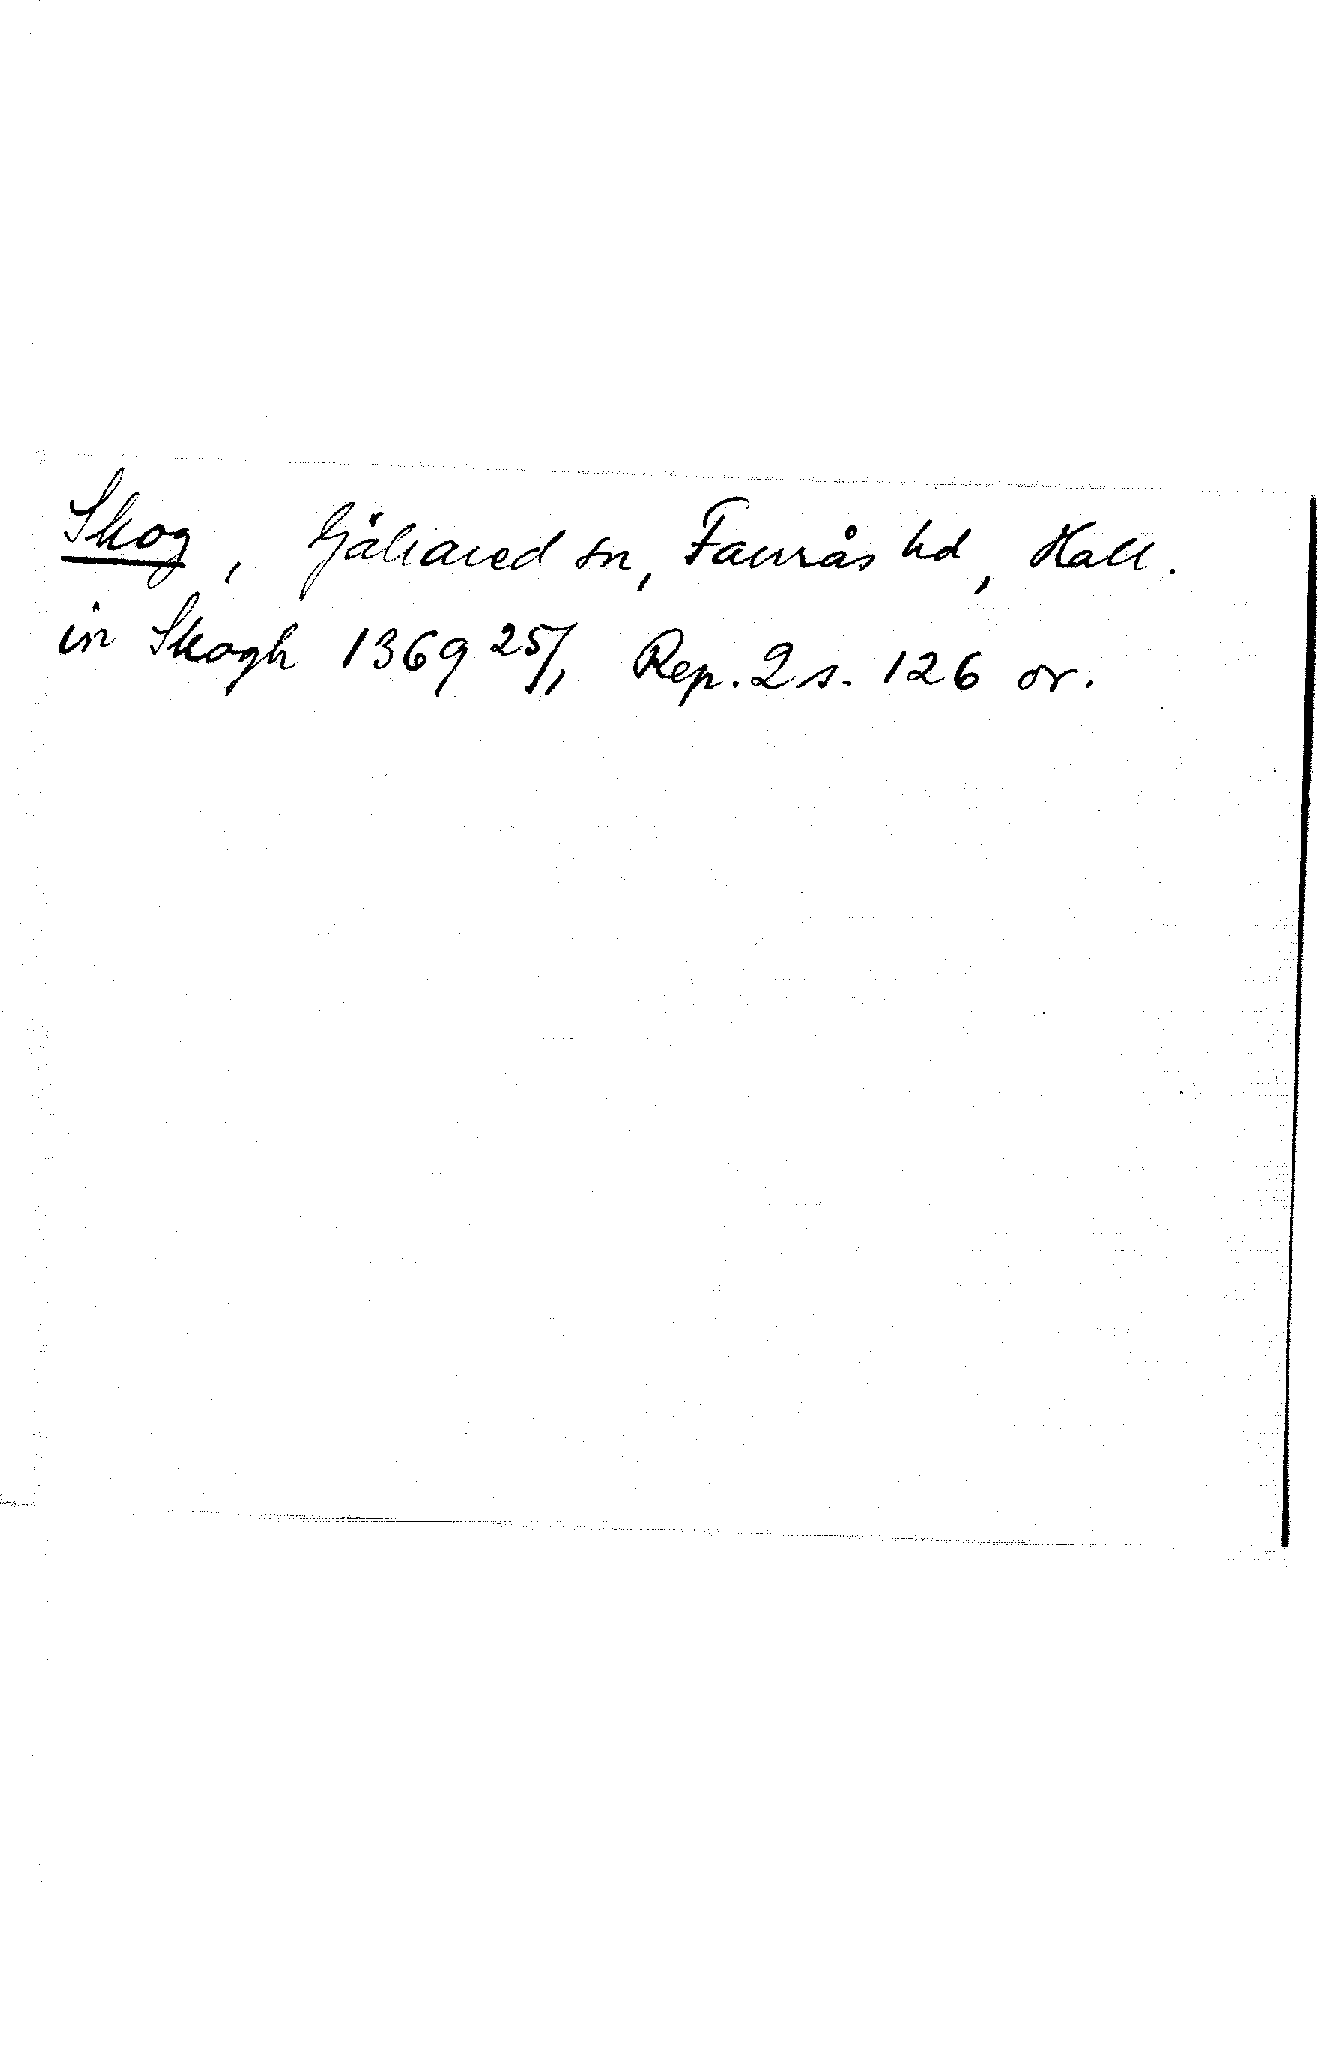 Skog, Gällared sn, Faurås hd, Hall.
in Skogh 1369 25/1 Rep. 2 s. 126 or.